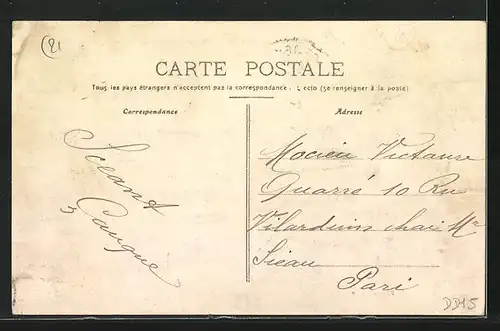 (21
CARTE POSTALE
Tous les pays étrangers n'acceptent pas la correspondance (se renseigner à la poste)
Correspondance
Adresse
Mocieu Victause
Quarré 10 Ru
Vilarduins chai Mr
Sieau
Pari
DD15